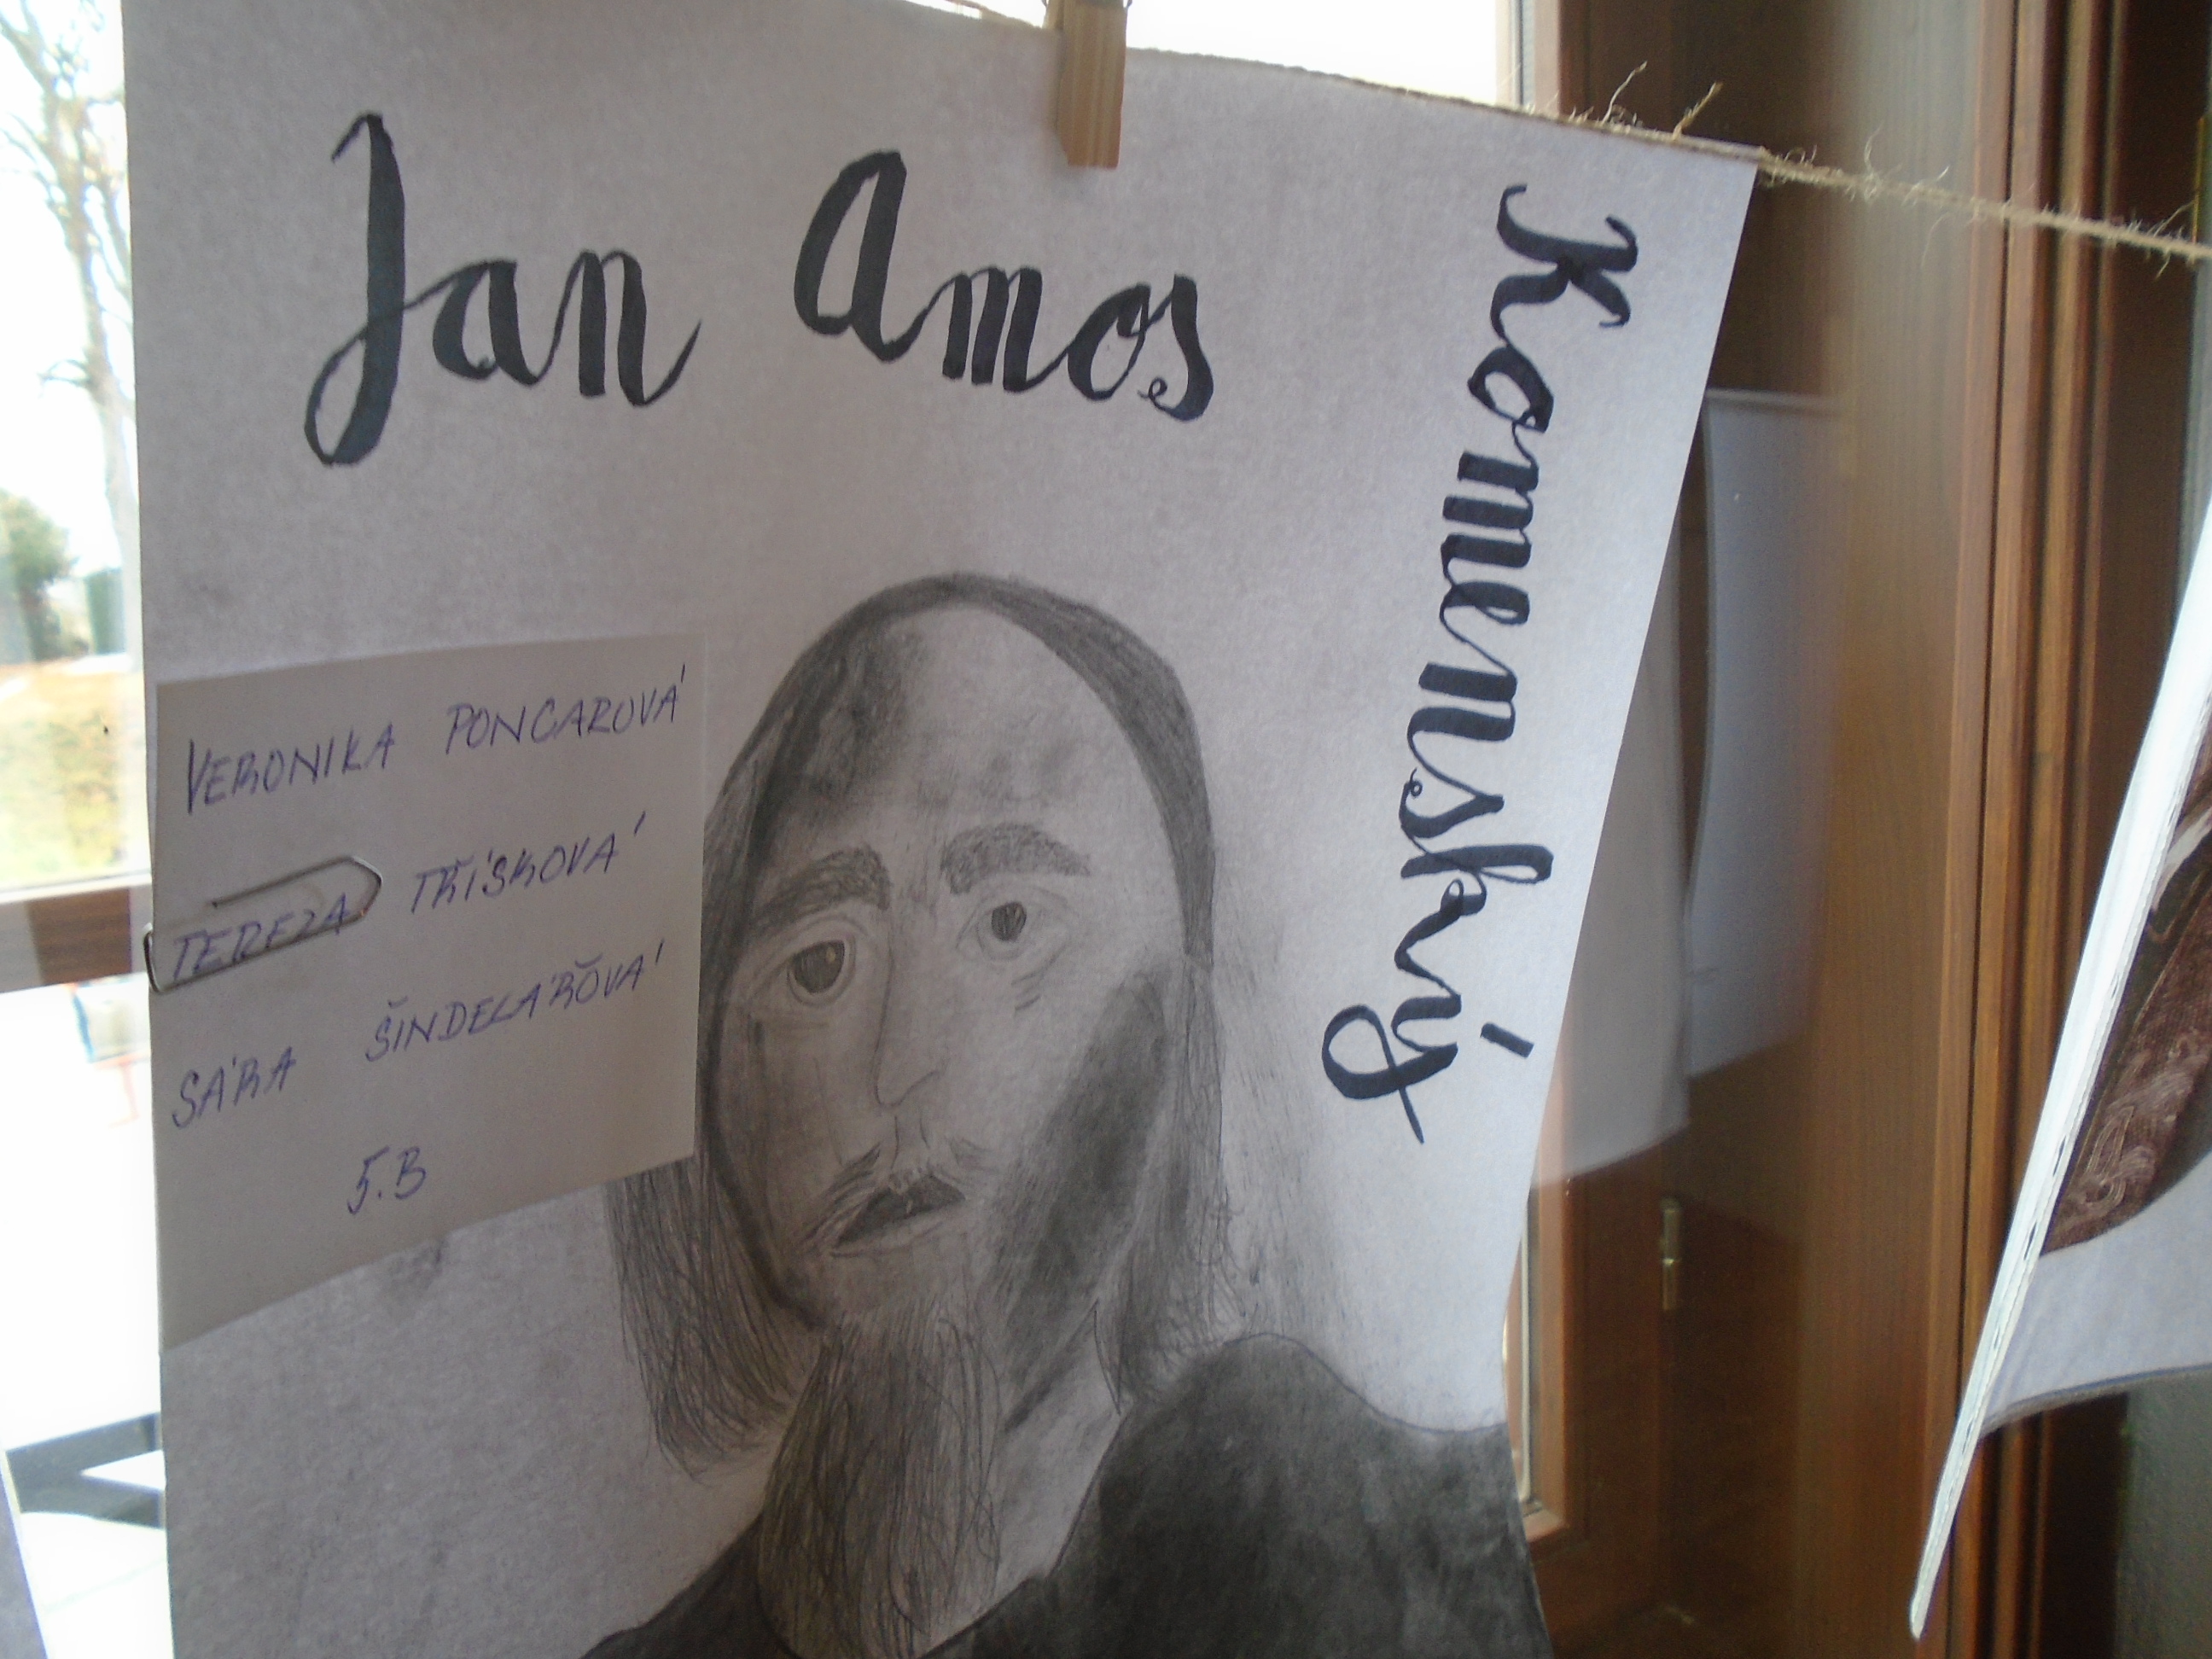 Jan Amos
Komenský
VERONIKA PONCAROVÁ
TEREZA TŘÍSKOVÁ
SÁRA ŠINDELÁŘOVÁ
5.B